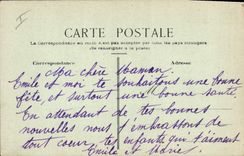 I
CARTE POSTALE
La Correspondance au recto n'est pas acceptée par tous les pays étrangers
(Se renseigner à la poste)
Correspondance
Adresse
Ma chère Maman.
Emile et moi te souhaitons une bonne
fête et surtout une bonne santé.
En attendant de tes bonnes
nouvelles nous t'embrassons de
tout coeur, tes enfants qui t'aiment
Emile et Marie